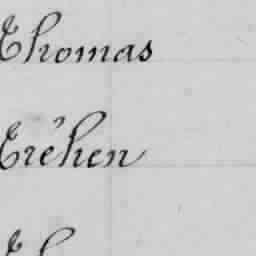 Thomas
Tréhen